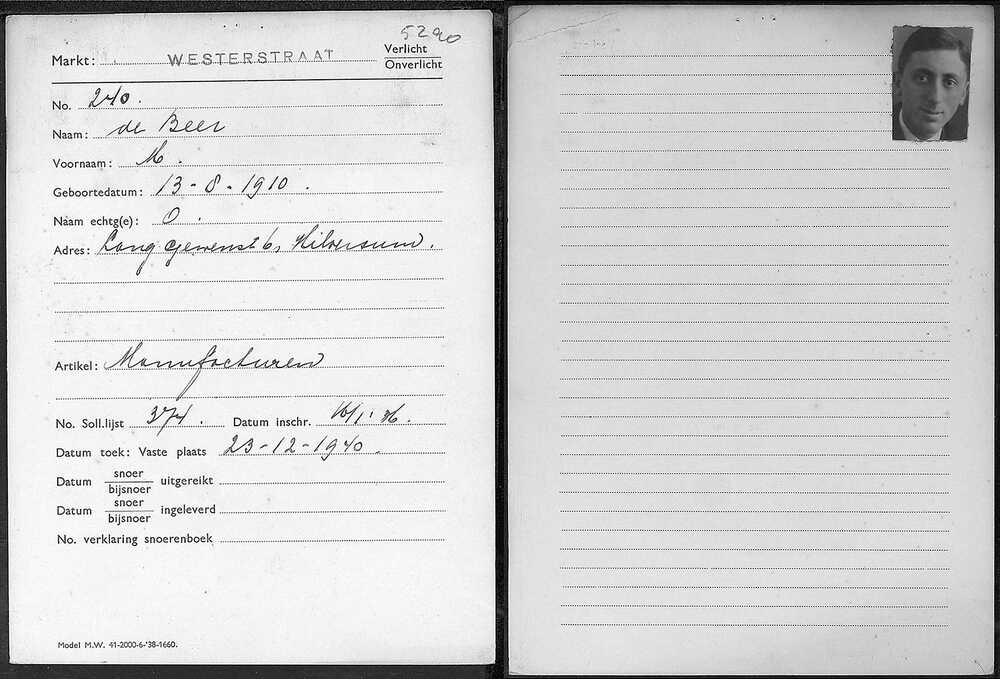 5290
Markt: WESTERSTRAAT Verlicht
Onverlicht
No. 240.
Naam: de Beer
Voornaam: M.
Geboortedatum: 13-8-1910.
Naam echtg(e): O.
Adres: Lang gewenst 6, Hilversum.
Artikel: Manufacturen
No. Soll.lijst 374. Datum inschr. 16/1'36.
Datum toek: Vaste plaats 23-12-1940.
Datum snoer
bijsnoer uitgereikt
Datum snoer
bijsnoer ingeleverd
No. verklaring snoerenboek
Model M.W. 41-2000-6-'38-1660.